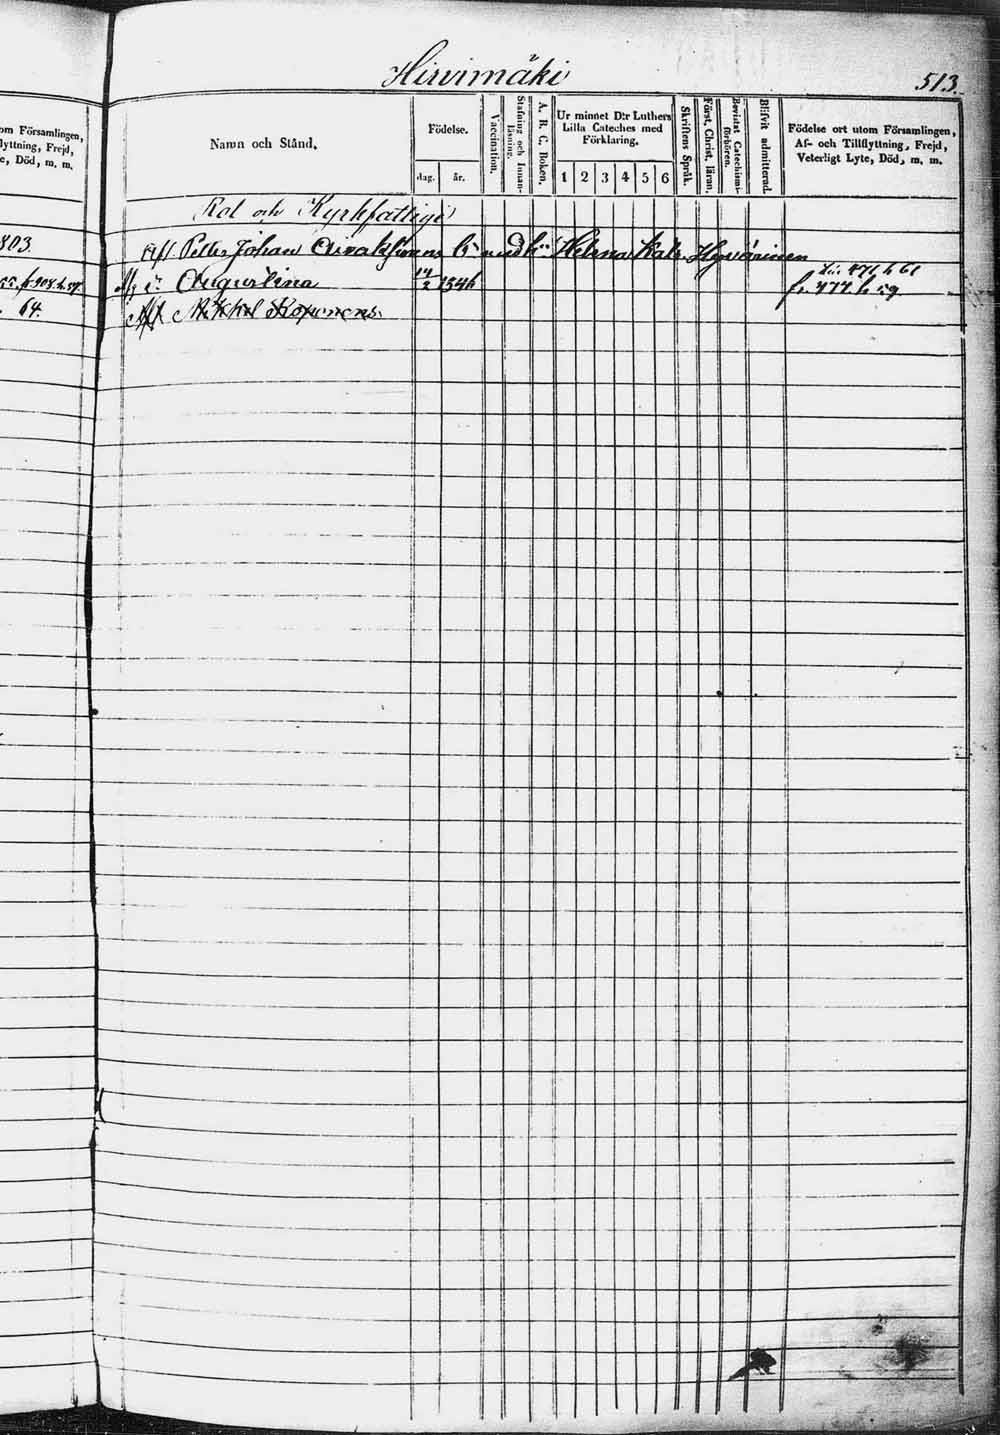 Hirvimäki
513.
om Församlingen,
lyttning, Frejd,
e, Död, m. m.
Namn och Stånd.
Födelse.
dag.
år.
Vaccination.
Stafning och Innan-
läsning.
A. B. C. Boken.
Ur minnet D:r Luthers
Lilla Cateches med
Förklaring.
1 2 3 4 5 6
Skriftens Språk.
Först. Christ. läran.
Bevistat Catechismi-
förhören.
Blifvit admitterad.
Födelse ort utom Församlingen,
Af- och Tillflyttning, Frejd,
Veterligt Lyte, Död, m. m.
Rot och Kyrkfattige
803
Afl Petter Johan Helena Kats. Hyvärinen
Augustina 14/2
fr. 477. h 59
64.
Afl Mikkel